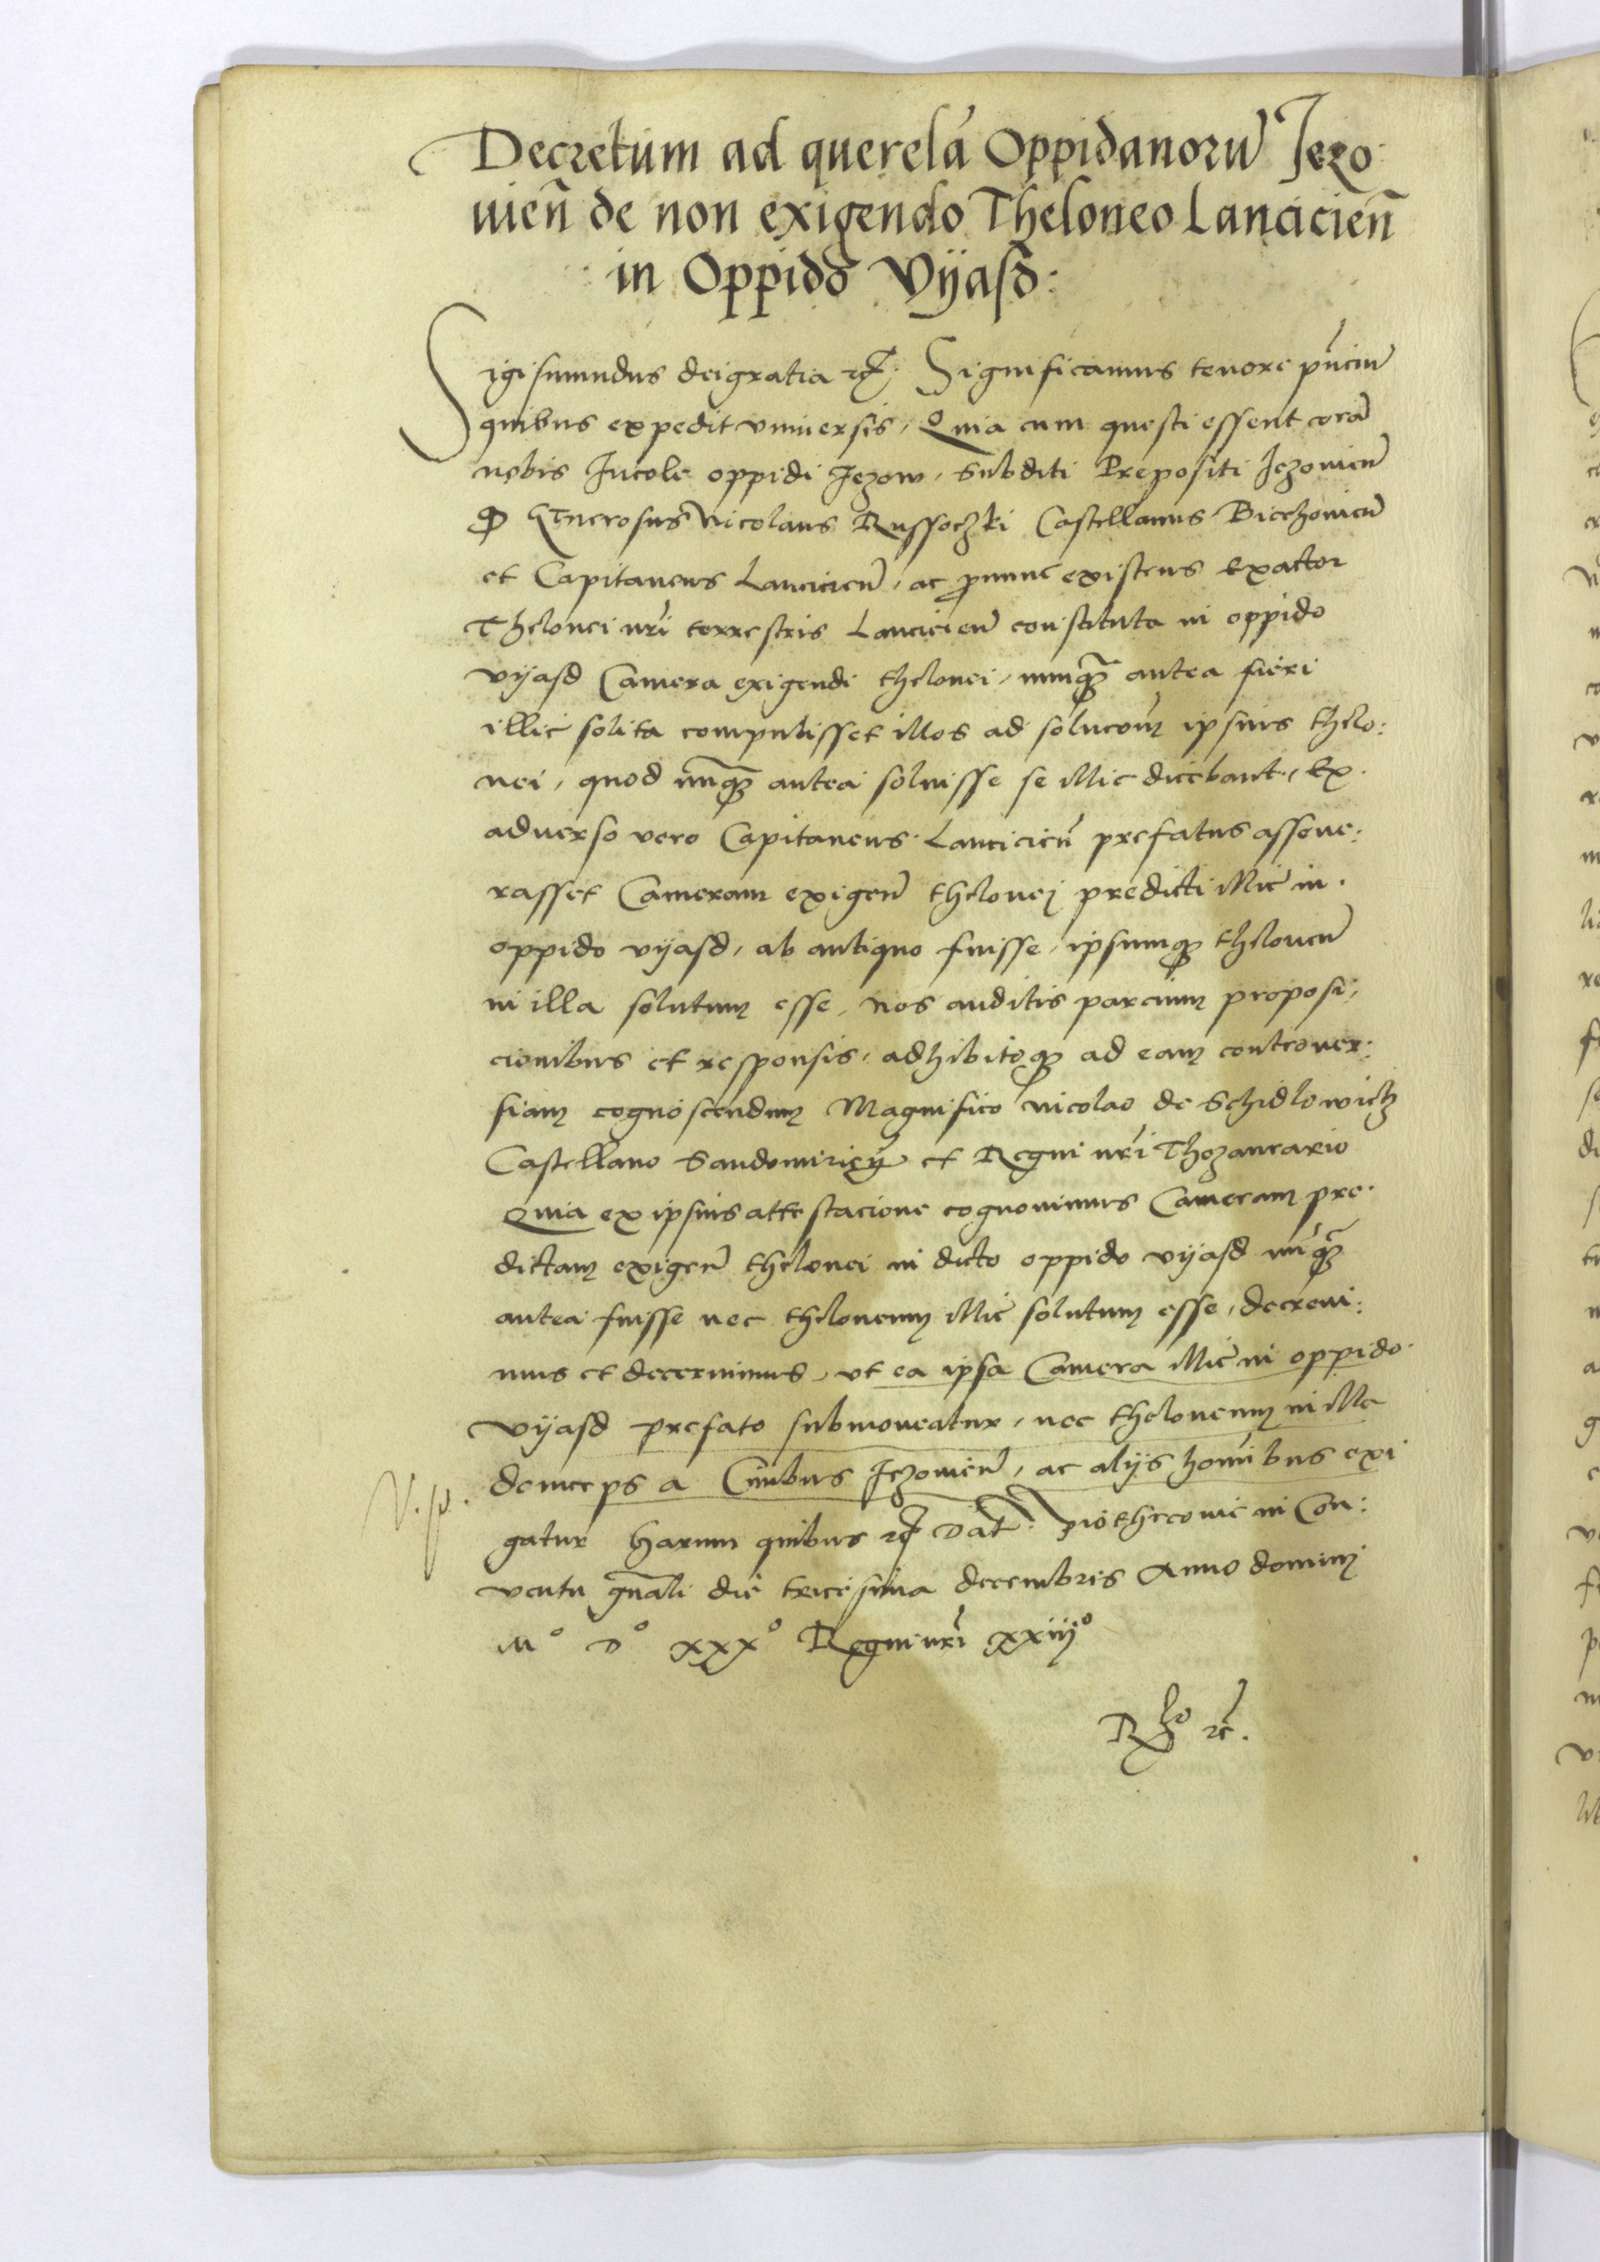 Decretum ad querelā Oppidanorū Jezo
uień de non exigendo Theloneo Lancicień
in Oppido Vyasd:
Sigismundus dei gratia etc. Significamus tenore pñciū
quibus expedit vniuersis, Quia cum questi essent corā
nobis Incole oppidi Jezow, subditi Prepositi Jezouień
Q Generosus Nicolaus Russoczki Castellanus Biechouień
et Capitaneus Lancicień, ac pronunc existens Exactor
Thelonei nŕi terrestris Lancicień constituta in oppido
vyasd Camera exigendi thelonei, nunq̄ antea fieri
illic solita compulisset illos ad solucoēm ipsius thelo:
nei, quod nūq̄ antea soluisse se illic dicebant, Ex
aduerso vero Capitaneus Lancicień prefatus asseue:
rasset Cameram exigeñ thelonej predicti illic in
oppido vyasd, ab antiquo fuisse, ipsumq̨ theloneū
in illa solutum esse, nos auditis parcium proposi,
cionibus et responsis, adhibitoq̨ ad eam controuer:
siam cognoscendum Magnifico Nicolao de Schidlowicz
Castellano Sandomirień et Regni nŕi Thezaurario
Quia ex ipsius attestacione cognouimus Cameram pre
dictam exigeñ thelonei in dicto oppido vyasd nūq̄
antea fuisse nec theloneum illic solutum esse, decreui:
mus et decernimus, vt ea ipsa Camera illic in oppido
vyasd prefato submoueatur, nec theloneum in illa
deinceps a Ciuibus Jezouień, ac alijs hoīibus exi
gatur Harum quibus etc Dat Piothrcouie in Con:
uentu gñali die tricesima decembris Anno dominj
M° D° xxx° Regni nŕi xxiiij°